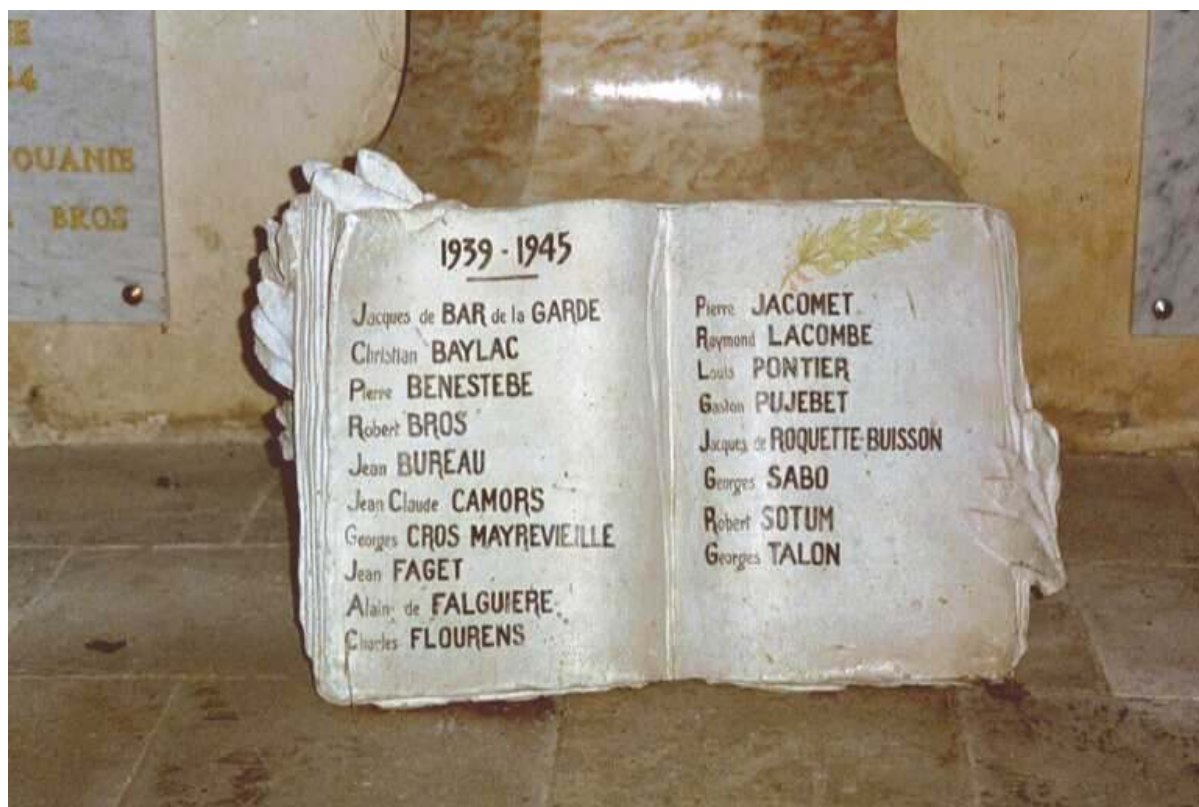 E
44
OUANIE
BROS
1939 - 1945
Jacques de BAR de la GARDE
Christian BAYLAC
Pierre BENESTEBE
Robert BROS
Jean BUREAU
Jean Claude CAMORS
Georges CROS MAYREVIEILLE
Jean FAGET
Alain de FALGUIERE
Charles FLOURENS
Pierre JACOMET
Raymond LACOMBE
Louis PONTIER
Gaston PUJEBET
Jacques de ROQUETTE-BUISSON
Georges SABO
Robert SOTUM
Georges TALON